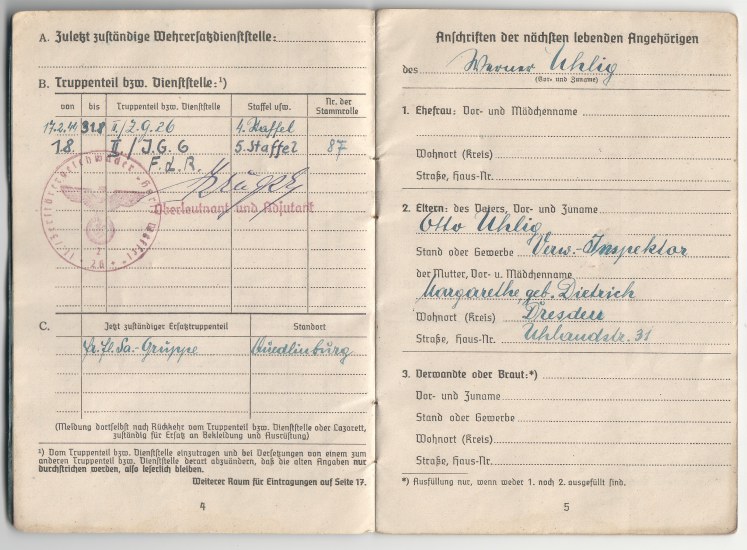 A. Zuletzt zuständige Wehrersatzdienststelle:
B. Truppenteil bzw. Dienststelle:¹)
von bis Truppenteil bzw. Dienststelle Staffel usw. Nr. der Stammrolle
17.2.44 31.8 II/Z.G.26 4. Staffel
1.8 II./J.G.6 5. Staffel 87
F.d.R.
Oberleutnant und Adjutant
C. Jetzt zuständiger Ersatztruppenteil Standort
Fl. Sa.-Gruppe Quedlinburg
(Meldung dortselbst nach Rückkehr vom Truppenteil bzw. Dienststelle oder Lazarett,
zuständig für Ersatz an Bekleidung und Ausrüstung)
¹) Vom Truppenteil bzw. Dienststelle einzutragen und bei Versetzungen von einem zum
anderen Truppenteil bzw. Dienststelle derart abzuändern, daß die alten Angaben nur
durchstrichen werden, also leserlich bleiben.
Weiterer Raum für Eintragungen auf Seite 17.
4
Anschriften der nächsten lebenden Angehörigen
des Werner Uhlig
(Vor- und Zuname)
1. Ehefrau: Vor- und Mädchenname
Wohnort (Kreis)
Straße, Haus-Nr.
2. Eltern: des Vaters, Vor- und Zuname
Otto Uhlig
Stand oder Gewerbe Verw.-Inspektor
der Mutter, Vor- u. Mädchenname
Margarethe, geb. Dietrich
Wohnort (Kreis) Dresden
Straße, Haus-Nr. Uhlandstr. 31
3. Verwandte oder Braut:*)
Vor- und Zuname
Stand oder Gewerbe
Wohnort (Kreis)
Straße, Haus-Nr.
*) Ausfüllung nur, wenn weder 1. noch 2. ausgefüllt sind.
5